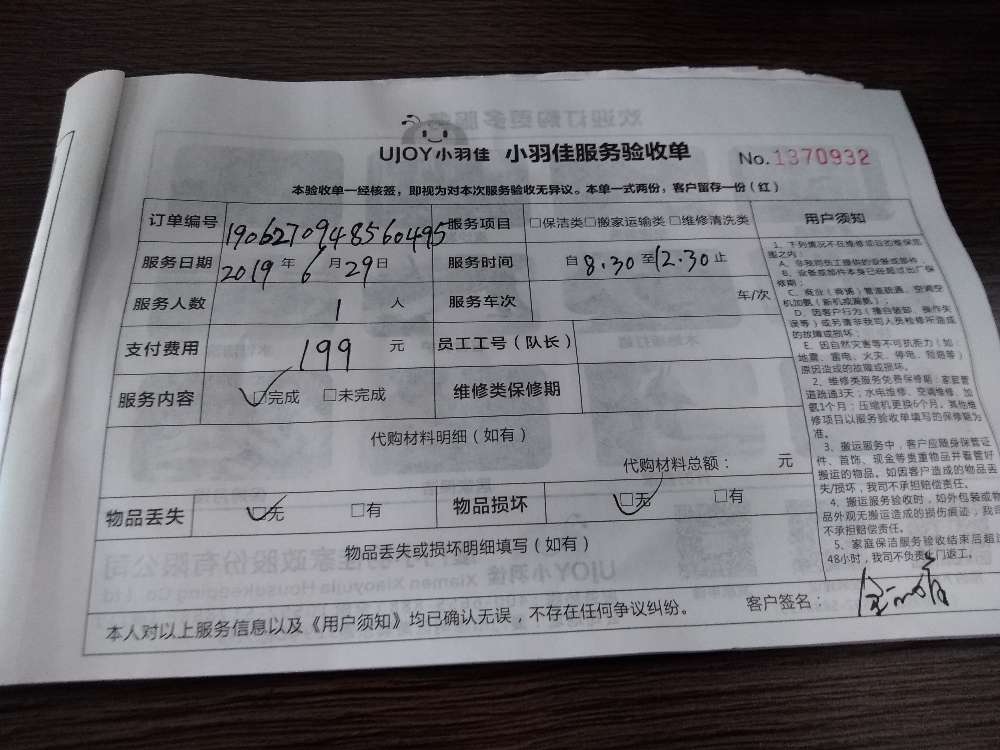 UJOY小羽佳 小羽佳服务验收单 No.1370932
本验收单一经核签，即视为对本次服务验收无异议。本单一式两份，客户留存一份（红）
订单编号 1906270948560495 服务项目 □保洁类□搬家运输类□维修清洗类
服务日期 2019年6月29日 服务时间 自8.30至12.30止
服务人数 1人 服务车次 车/次
支付费用 199元 员工工号（队长）
服务内容 □完成 □未完成 维修类保修期
代购材料明细（如有）
代购材料总额： 元
物品丢失 □无 □有 物品损坏 □无 □有
物品丢失或损坏明细填写（如有）
本人对以上服务信息以及《用户须知》均已确认无误，不存在任何争议纠纷。 客户签名：
用户须知
1、下列情况不在维修项目的维保范
围之内：
A、非我司员工提供的设备或部件；
B、设备或部件本身已经超过出厂保
修期；
C、商业（商铺）管道疏通、空调空
机加氨（新机或漏氨）；
D、因客户行为（擅自装卸、操作失
误等）或另请非我司人员检修所造成
的故障或损坏；
E、因自然灾害等不可抗拒力（如：
地震、雷电、火灾、停电、短路等）
原因造成的故障或损坏。
2、维修类服务免费保修期：家庭管
道疏通3天；水电维修、空调维修、加
氨1个月；压缩机更换6个月。其他维
修项目以服务验收单填写的保修期为
准。
3、搬运服务中，客户应随身保管证
件、首饰、现金等贵重物品并看管好
搬运的物品。如因客户造成的物品丢
失/损坏，我司不承担赔偿责任。
4、搬运服务验收时，如外包装或物
品外观无搬运造成的损伤痕迹，我司
不承担赔偿责任。
5、家庭保洁服务验收结束后超过
48小时，我司不负责上门返工。